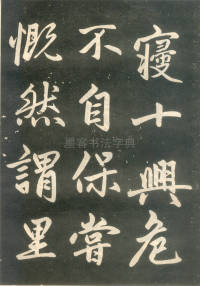 寝十興危
不自保嘗
慨然謂里
墨客书法字典